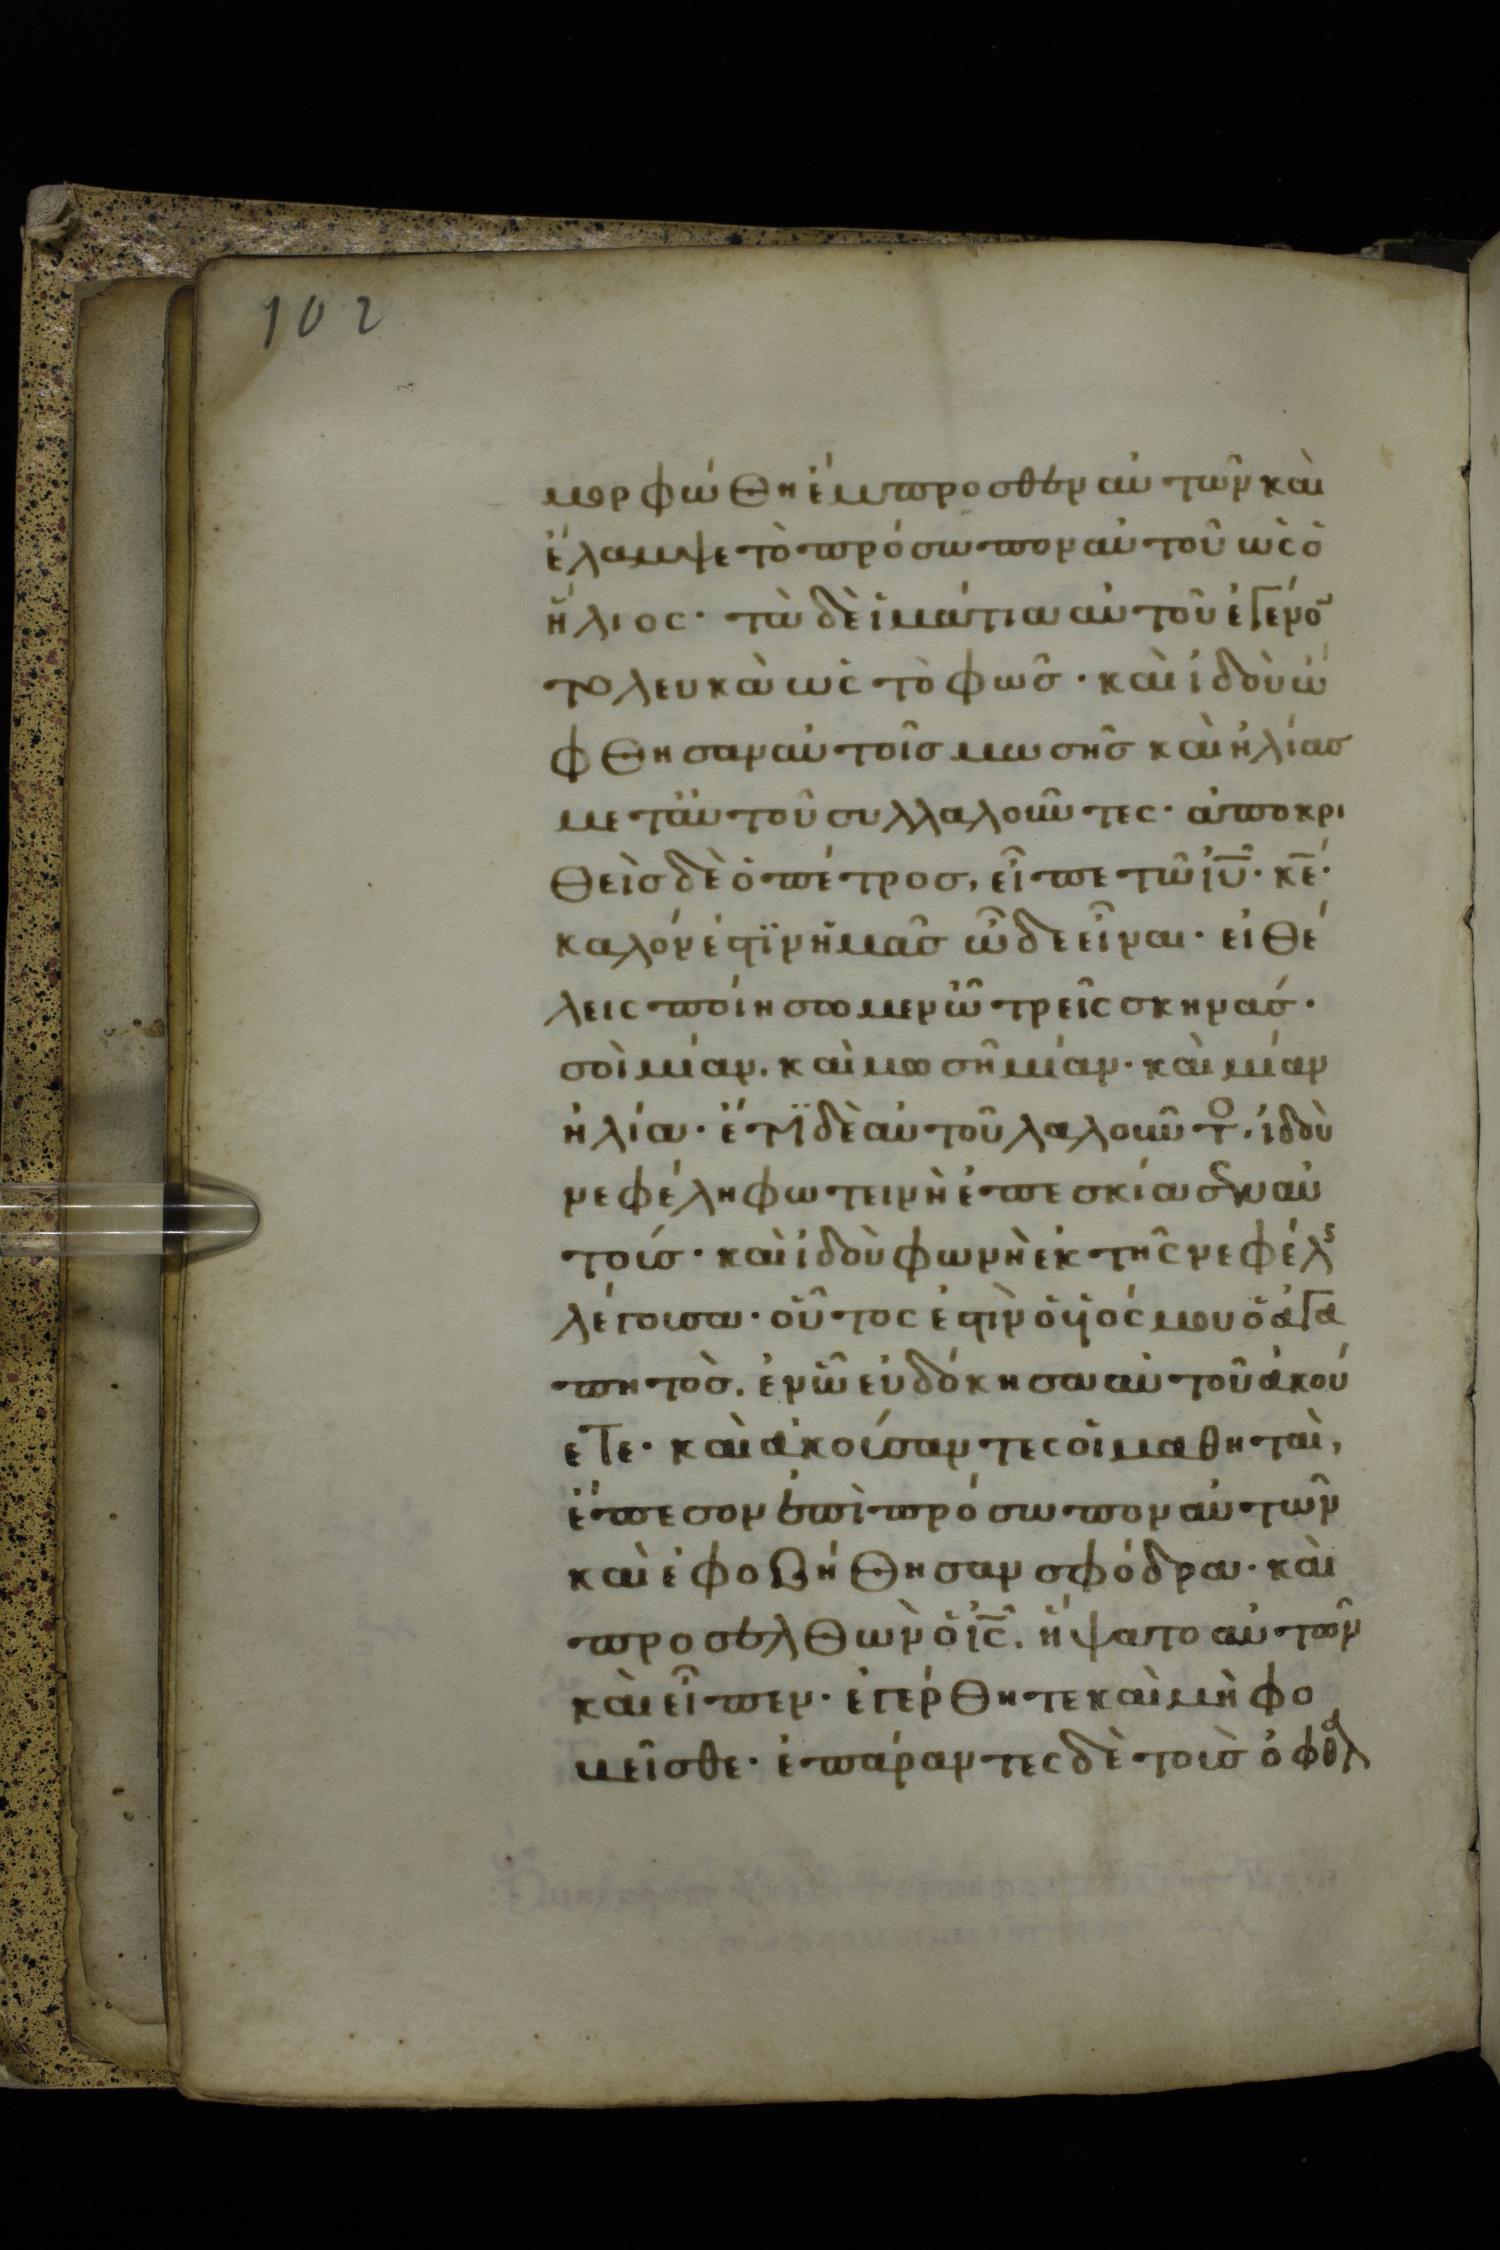 102
μορφώθη ἔμπροσθεν αὐτῶν καὶ
ἔλαμψε τὸ πρόσωπον αὐτοῦ ὡς ὁ
ἥλιος· τὰ δὲ ἱμάτια αὐτοῦ ἐγένο
το λευκὰ ὡς τὸ φῶς· καὶ ἰδοὺ ὤ
φθησαν αὐτοῖς μωσῆς καὶ ἠλίας
μετ' αὐτοῦ συλλαλοῦντες· ἀποκρι
θεὶς δὲ ὁ πέτρος, εἶπε τῶ ἰῦ· κε·
καλόν ἐστϊν ἡμᾶς ὧδε εἶναι· εἰ θέ
λεις ποίησομεν ὧ τρεῖς σκηνάς·
σοὶ μίαν, καὶ μωσῆ μίαν· καὶ μίαν
ἠλία· ἔτϊ δὲ αὐτοῦ λαλοῦντο, ἰδοὺ
νεφέλη φωτεινὴ ἐπεσκίασεν αὐ
τούς· καὶ ἰδοὺ φωνὴ ἐκ τῆς νεφέλς
λέγουσα· οὗτος ἐστιν ὁ ὑιός μου ὁ ἀγα
πητὸς, ἐν ὧ εὐδόκησα αὐτοῦ ἀκού
ετε· καὶ ἀκούσαντες οἱ μαθηταὶ,
ἔπεσον ἐπὶ πρόσωπον αὐτῶν
καὶ ἐφοβήθησαν σφόδρα· καὶ
προσελθὼν ὁ ἰς, ἥψατο αὐτῶν
καὶ εἶπεν· ἐγέρθητε καὶ μὴ φο
βεῖσθε· ἐπάραντες δὲ τοὺς ὀφθαλ